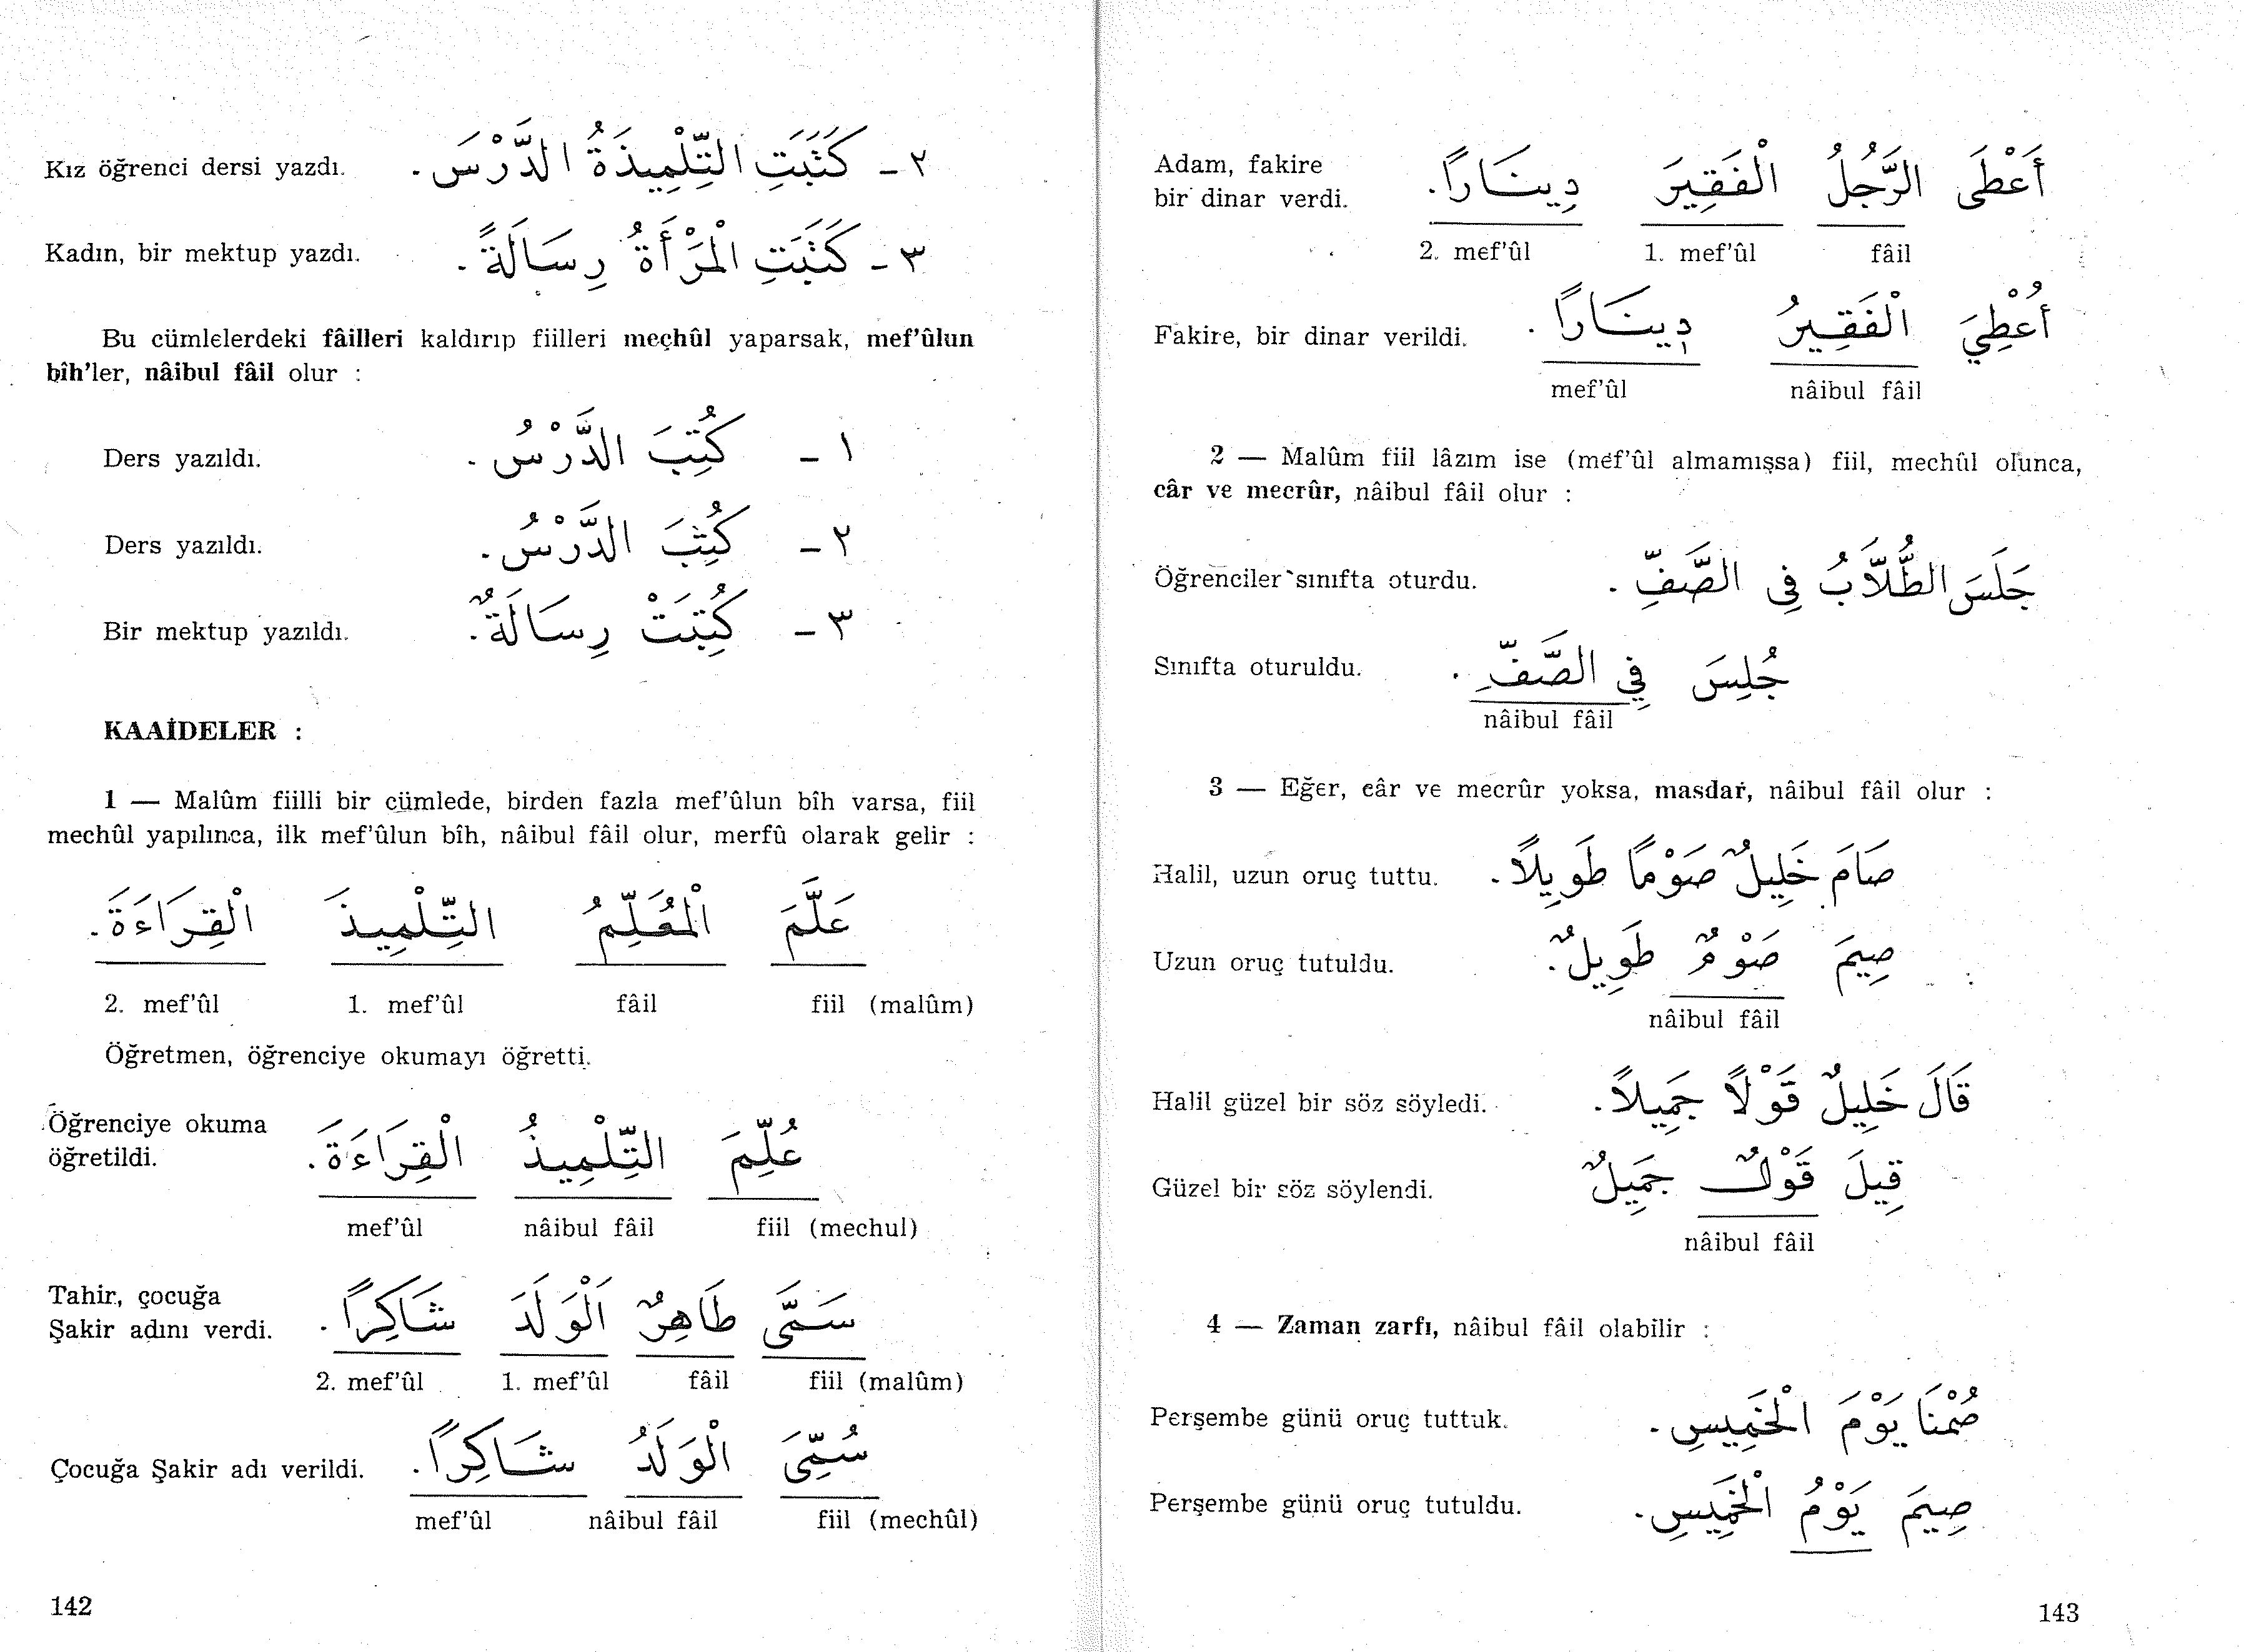 Kız öğrenci dersi yazdı. ٢ - كَتَبَتِ التِّلْمِيذَةُ الدَّرْسَ .
Kadın, bir mektup yazdı. ٣ - كَتَبَتِ الْمَرْأَةُ رِسَالَةً .
Bu cümlelerdeki fâilleri kaldırıp fiilleri meçhûl yaparsak, mef'ûlun
bîh'ler, nâibul fâil olur :
Ders yazıldı. ١ - كُتِبَ الدَّرْسُ .
Ders yazıldı. ٢ - كُتِبَ الدَّرْسُ .
Bir mektup yazıldı. ٣ - كُتِبَتْ رِسَالَةٌ .
KAAİDELER :
1 — Malûm fiilli bir cümlede, birden fazla mef'ûlun bîh varsa, fiil
mechûl yapılınca, ilk mef'ûlun bîh, nâibul fâil olur, merfû olarak gelir :
عَلَّمَ الْمُعَلِّمُ التِّلْمِيذَ الْقِرَاءَةَ .
2. mef'ûl 1. mef'ûl fâil fiil (malûm)
Öğretmen, öğrenciye okumayı öğretti.
Öğrenciye okuma
öğretildi. عُلِّمَ التِّلْمِيذُ الْقِرَاءَةَ .
mef'ûl nâibul fâil fiil (mechul)
Tahir, çocuğa
Şakir adını verdi. سَمَّى طَاهِرٌ اَلْوَلَدَ شَاكِرًا .
2. mef'ûl 1. mef'ûl fâil fiil (malûm)
Çocuğa Şakir adı verildi. سُمِّىَ الْوَلَدُ شَاكِرًا .
mef'ûl nâibul fâil fiil (mechûl)
142
Adam, fakire
bir dinar verdi. أَعْطَى الرَّجُلُ الْفَقِيرَ دِينَارًا .
2. mef'ûl 1. mef'ûl fâil
Fakire, bir dinar verildi. أُعْطِيَ الْفَقِيرُ دِينَارًا .
mef'ûl nâibul fâil
2 — Malûm fiil lâzım ise (mef'ûl almamışsa) fiil, mechûl olunca,
câr ve mecrûr, nâibul fâil olur :
Öğrenciler sınıfta oturdu. جَلَسَ الطُّلَّابُ فِي الصَّفِّ .
Sınıfta oturuldu. جُلِسَ فِي الصَّفِّ .
nâibul fâil
3 — Eğer, câr ve mecrûr yoksa, masdar, nâibul fâil olur :
Halil, uzun oruç tuttu. صَامَ خَلِيلٌ صَوْمًا طَوِيلًا .
Uzun oruç tutuldu. صِيمَ صَوْمٌ طَوِيلٌ .
nâibul fâil
Halil güzel bir söz söyledi. قَالَ خَلِيلٌ قَوْلًا جَمِيلًا .
Güzel bir söz söylendi. قِيلَ قَوْلٌ جَمِيلٌ
nâibul fâil
4 — Zaman zarfı, nâibul fâil olabilir :
Perşembe günü oruç tuttuk. صُمْنَا يَوْمَ الْخَمِيسِ .
Perşembe günü oruç tutuldu. صِيمَ يَوْمُ الْخَمِيسِ .
143